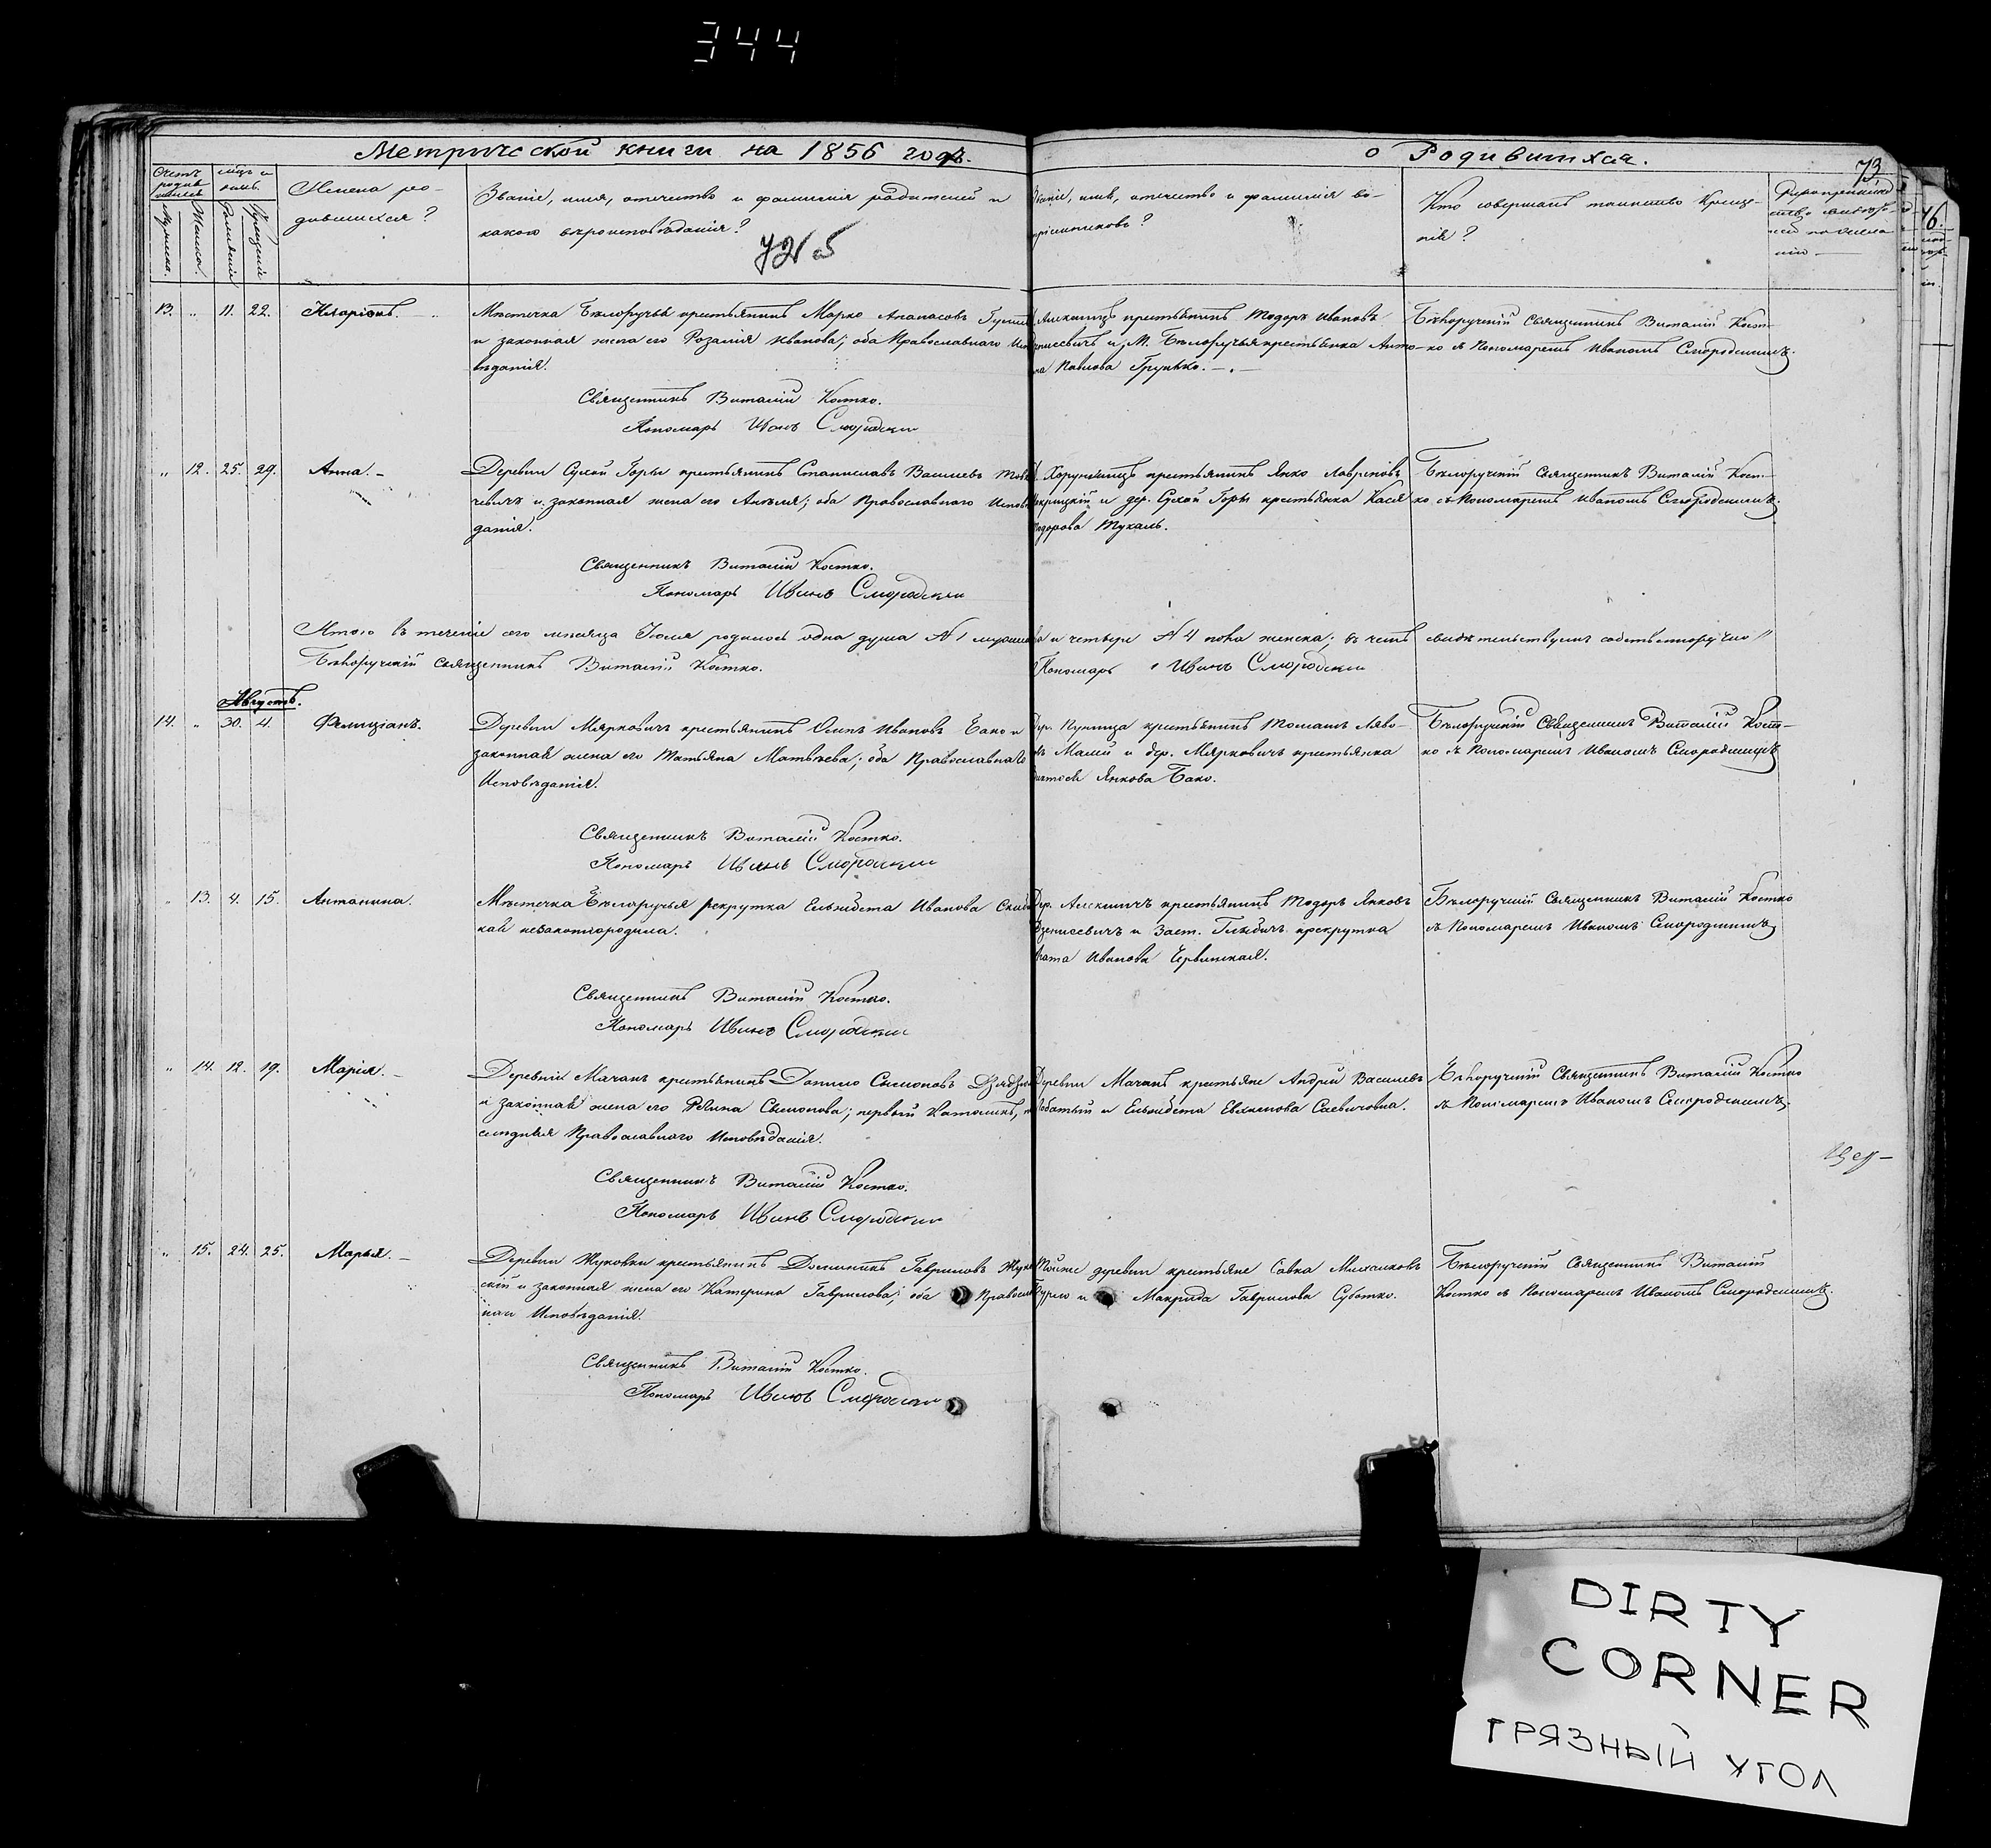 344
Метрической книги на 1856 годъ.
о Родившихся.
73
Счетъ родив
Мужеска.
Женска.
Рожденія
Крещенія
Имена ро-
дившихся?
Званіе, имя, отечество и фамилія родителей и
какого вѣроисповѣданія?
Званіе, имя, отечество и фамилія во-
пріемниковъ?
Кто совершалъ таинство Креще-
нія?
13. „ 11. 22.
Иларіонъ.
Мѣстечка Бѣлоручья крестьянинъ Марко Апанасовъ
и законная жена его Розалія Иванова; оба Православнаго Испо
вѣданія.
Священникъ Виталій Костко.
Пономарь Иванъ Смородскій
крестьянинъ Тодоръ Ивановъ
и М. Бѣлоручья крестьянка Анто-
на Павлова Грунько.
Бѣлоручскій Священникъ Виталій Кост-
ко съ Пономаремъ Иваномъ Смородскимъ.
„ 12. 25. 29.
Анна.
Деревни Сухой Горы крестьянинъ Станиславъ Василевъ
чевичъ и законная жена его Анеля; оба Православнаго Исповѣ
данія.
Священникъ Виталій Костко.
Пономарь Иванъ Смородскій
крестьянинъ Янко Лавриновъ
и дер. Сухой Горы крестьянка Кася
Тодорова Тухаль.
Бѣлоручскій Священникъ Виталій Кост-
ко съ Пономаремъ Иваномъ Смородскимъ.
Итого въ теченіе сего мѣсяца Іюля родилось одна душа № 1 мужеска и четыре № 4 пола женска; въ чемъ свидѣтельствуемъ собственноручно
Бѣлоручскій Священникъ Виталій Костко.
Пономарь Иванъ Смородскій
Августъ.
14. „ 30. 4.
Фелиціанъ.
Деревни Мярковичъ крестьянинъ Осипъ Ивановъ Бако и
законная жена его Татьяна Матвѣева; оба Православнаго
Исповѣданія.
Священникъ Виталій Костко.
Пономарь Иванъ Смородскій
Дер. крестьянинъ Томашъ
и дер. Мярковичъ крестьянка
Янкова Бако.
Бѣлоручскій Священникъ Виталій Кост-
ко съ Пономаремъ Иваномъ Смородскимъ
„ 13. 4. 15.
Антонина.
Мѣстечка Бѣлоручья рекрутка Ельжбета Иванова
кая незаконнородила.
Священникъ Виталій Костко.
Пономарь Иванъ Смородскій
Дер. крестьянинъ Тодоръ Янковъ
и Заст. рекрутка
Иванова Червинская.
Бѣлоручскій Священникъ Виталій Костко
съ Пономаремъ Иваномъ Смородскимъ
„ 14. 12. 19.
Марія.
Деревни Мачанъ крестьянинъ Данило Симоновъ
и законная жена его Симонова; первый Католикъ, по
слѣдняя Православнаго Исповѣданія.
Священникъ Виталій Костко.
Пономарь Иванъ Смородскій
Деревни Мачанъ крестьяне Андрей Василевъ
и Ельжбета Саевичовна.
Бѣлоручскій Священникъ Виталій Костко
съ Пономаремъ Иваномъ Смородскимъ.
„ 15. 24. 25.
Марья.
Деревни Жуковки крестьянинъ Доминикъ Гавриловъ Жуков
скій и законная жена его Катерина Гаврилова; оба Правосла
Исповѣданія.
Священникъ Виталій Костко.
Пономарь Иванъ Смородскій
Тойже деревни крестьяне Савка
и Макрида Гаврилова Суботко.
Бѣлоручскій Священникъ Виталій
Костко съ Пономаремъ Иваномъ Смородскимъ.
DIRTY
CORNER
ГРЯЗНЫЙ УГОЛ